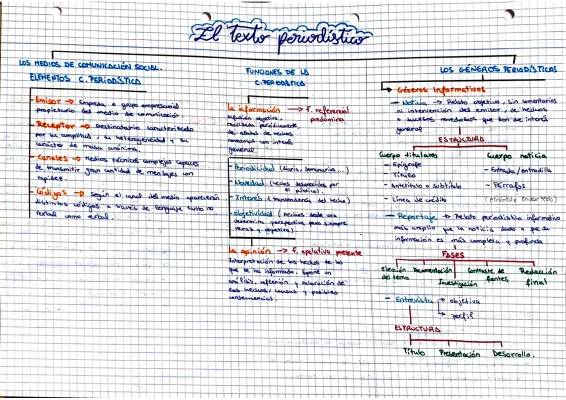 El texto periodístico
LOS MEDIOS DE COMUNICACIÓN SOCIAL.
ELEMENTOS C. PERIODÍSTICA
- Emisor → Empresa o grupo empresarial
propietario del medio de comunicación.
- Receptor → Destinatario caracterizado
por su amplitud, su heterogeneidad y su
carácter de masa anónima.
- Canales → Medios técnicos complejos capaces
de transmitir gran cantidad de mensajes con
rapidez.
- Códigos → Según el canal del medio aparecerán
distintos códigos a través de lenguaje tanto no
verbal como verbal.
FUNCIONES DE LA
C. PERIODÍSTICA
La información → F. referencial
predomina
general.
- Periodicidad (diario, semanario...)
- Novedad (hechos desconocidos por
el público).
- Interés (transcendencia del hecho)
- Objetividad (hechos desde una
determinada perspectiva pero siempre
veraz y objetiva).
La opinión → F. apelativa presente
Interpretación de los hechos de los
que se ha informado. Supone un
análisis, reflexión y valoración de
esos hechos, causas y posibles
consecuencias.
LOS GÉNEROS PERIODÍSTICOS
Géneros Informativos
- Noticia → Relato objetivo, sin comentarios
ni intervención del emisor, de hechos
o sucesos novedosos que son de interés
general
ESTRUCTURA
Cuerpo titulares
- Epígrafe
- Título
- Antetítulo o subtítulo
- Línea de crédito
Cuerpo noticia
- Entrada/entradilla
- Párrafos
(pirámide invertida)
- Reportaje → Relato periodístico informativo
más amplio que la noticia, dado a que la
información es más completa y profunda
FASES
Elección del tema
Documentación
Investigación
Contraste de fuentes
Redacción final
- Entrevista → objetiva
→ perfil
ESTRUCTURA
Título Presentación Desarrollo.